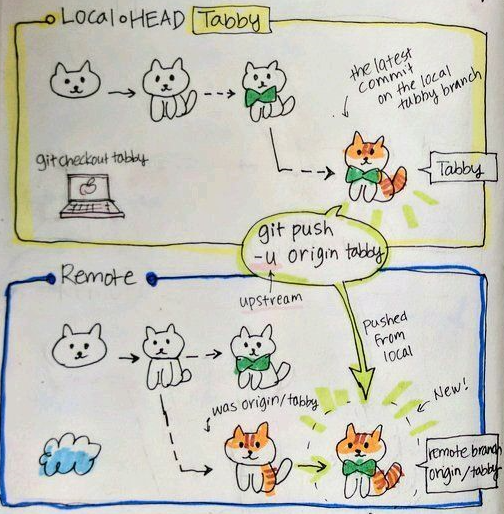 Local HEAD Tabby
the latest
commit
on the local
tabby branch
git checkout tabby
Tabby
git push
-u origin tabby
upstream
Remote
pushed
from
local
was origin/tabby
New!
remote branch
origin/tabby